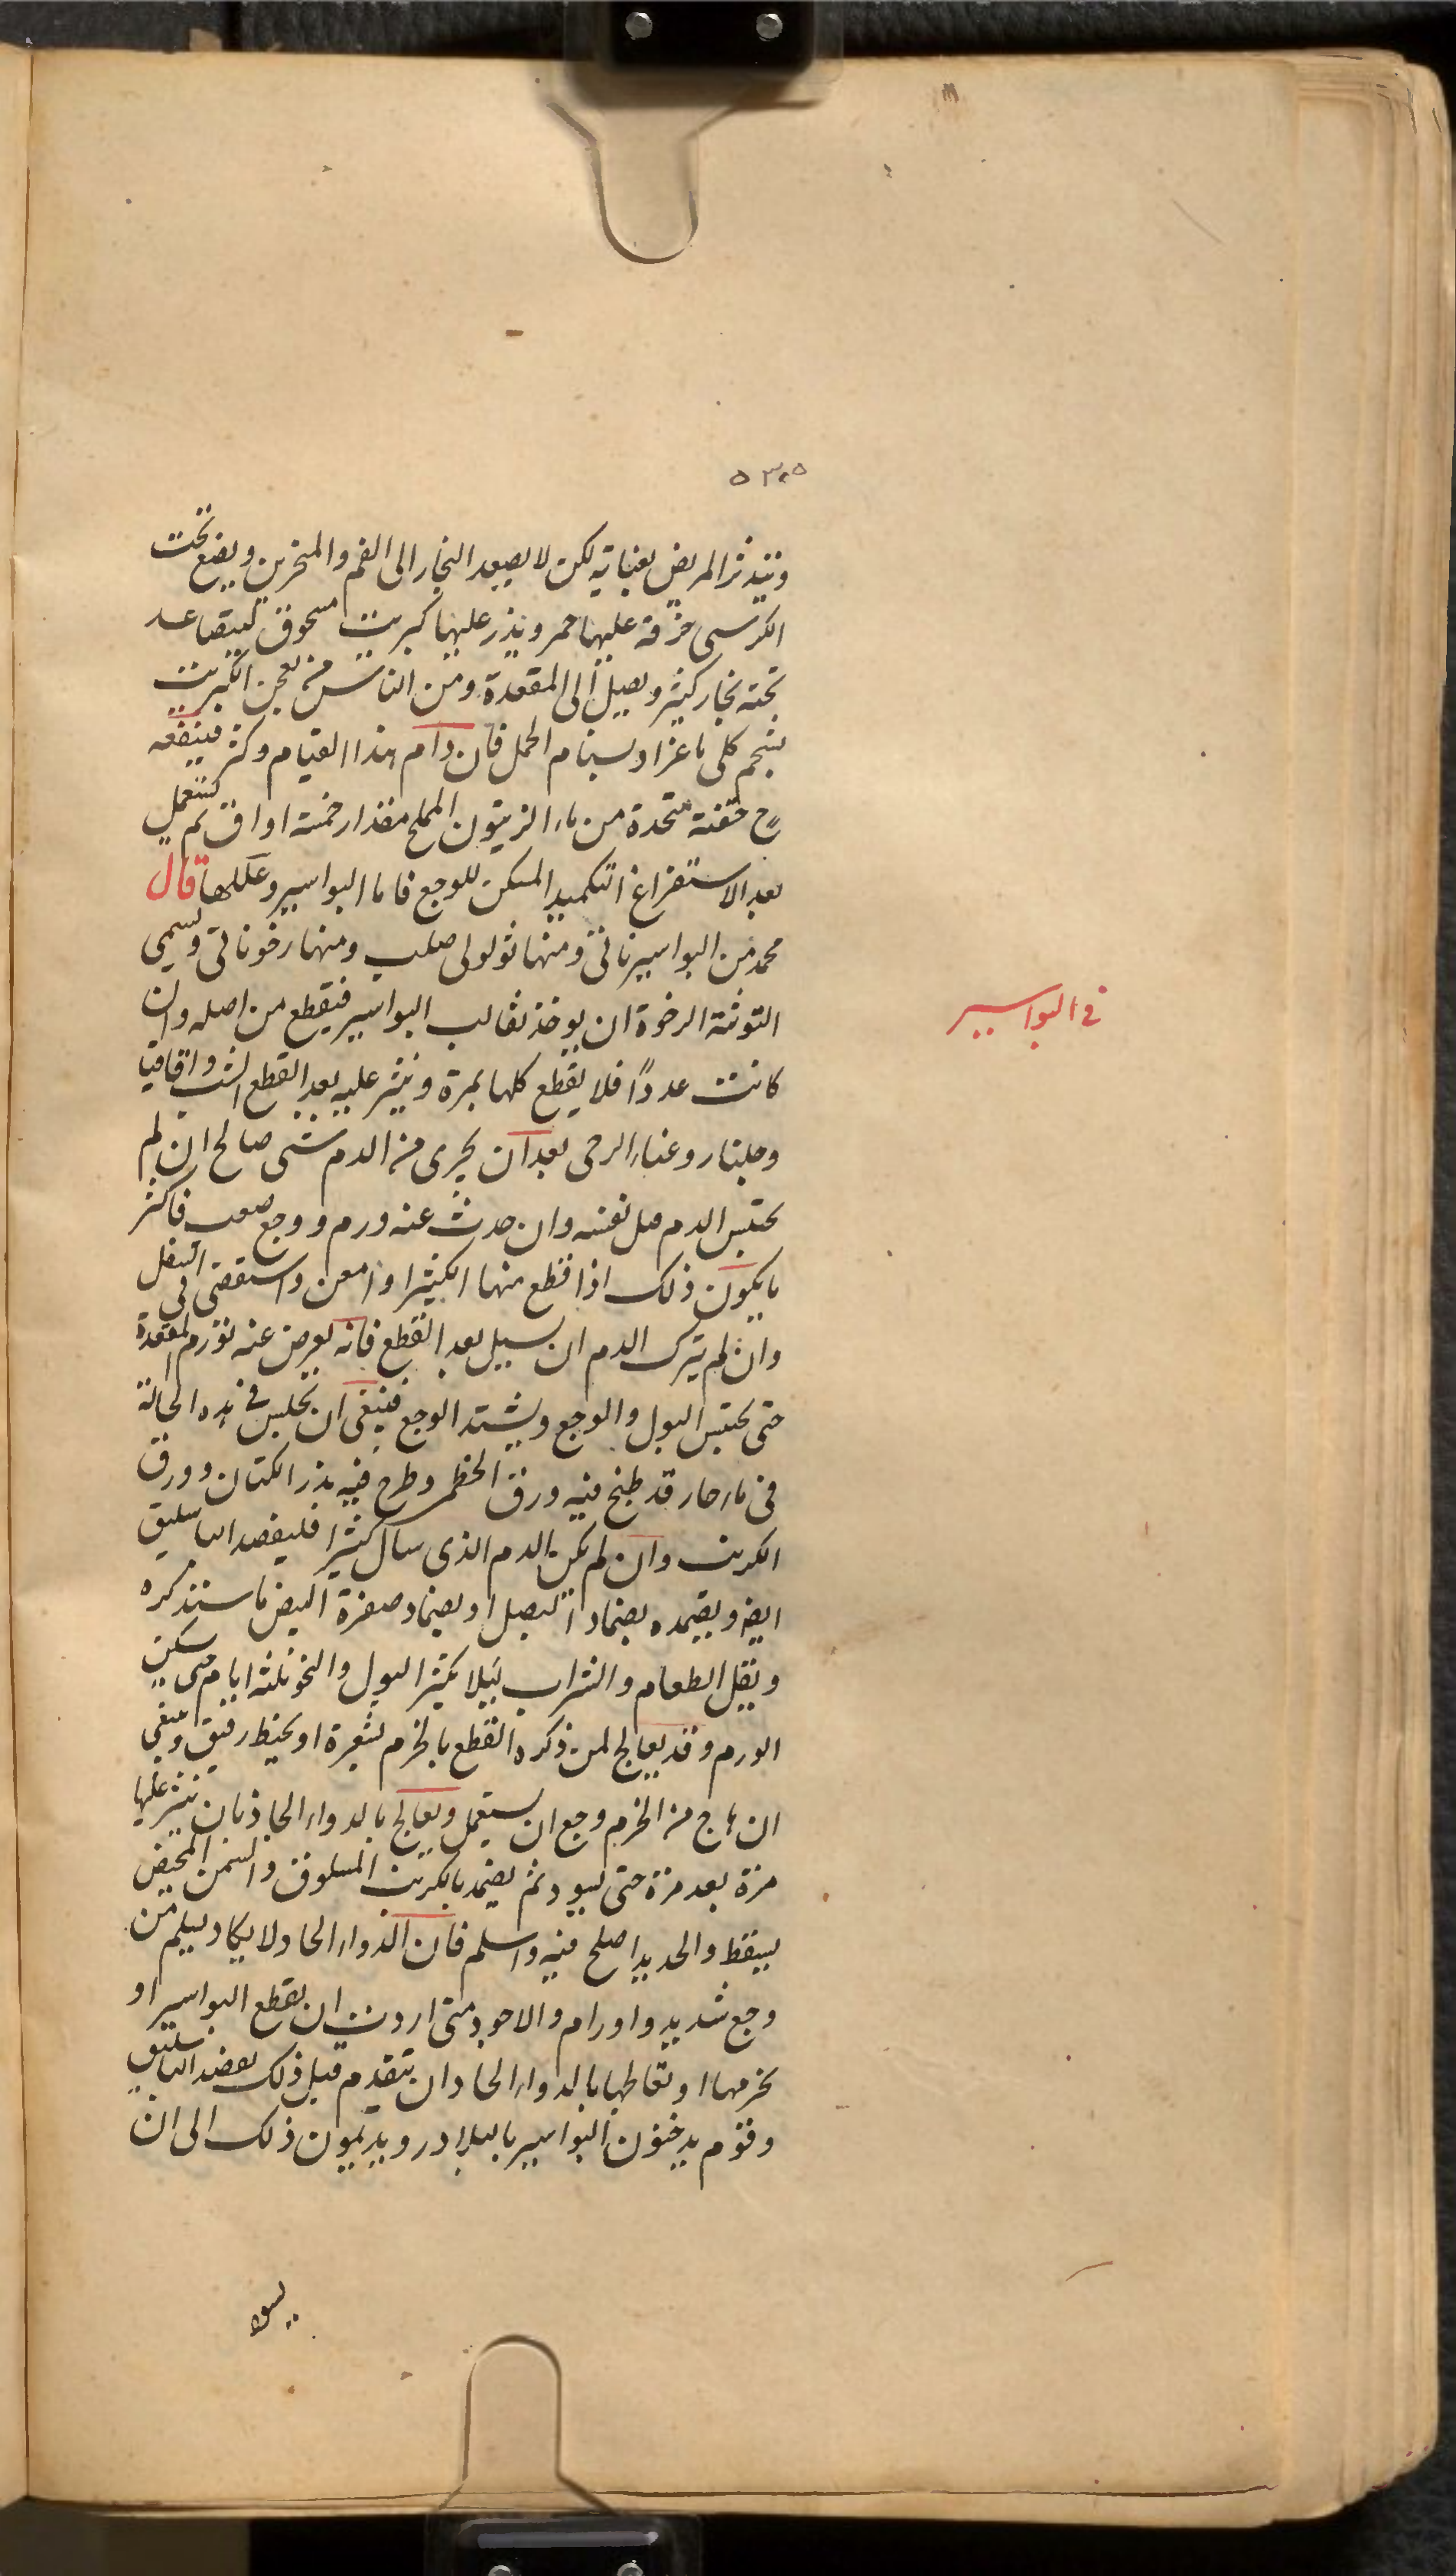 ٥٣٠٥
ويتدثر المريض بعناية لكن لا يصعد البخار الى الفم والمنخرين ويضع تحت
الكرسي خزفة عليها جمر ويذر عليها كبريت مسحوق ليتصاعد
تحته بخار كثير ويصل الى المقعدة ومن الناس من يعجن الكبريت
بشحم كلى ماعز او سنام الجمل فان دام هذا القيام وكثر فينفعه
ح حقنة متخذة من ماء الزيتون المملح مقدار خمسة اواق ثم يستعمل
بعد الاستفراغ التكميد المسكن للوجع فاما البواسير وعللها قال
محمد من البواسير ناتى ومنها ثولولى صلب ومنها رخو ناتى ويسمى
التوثة الرخوة ان يوخذ بقالب البواسير فيقطع من اصله وان
كانت عددًا فلا يقطع كلها بمرة وينثر عليه بعد القطع الشب واقاقيا
وجلنار وغبار الرحى بعد ان يجرى من الدم شى صالح ان لم
يحتبس الدم من نفسه وان حدث عنه ورم ووجع صعب فاكثر
ما يكون ذلك اذا قطع منها الكثير او امعن واستقصى فى
وان لم يترك الدم ان يسيل بعد القطع فانه يعرض عنه تورم المقعدة
حتى يحتبس البول والوجع ويشتد الوجع فينبغى ان يجلس فى هذه الحالة
فى ماء حار قد طبخ فيه ورق الخطمى وطرح فيه بزر الكتان وورق
الكرنب وان لم يكن الدم الذى سال كثيرا فليفصد الباسليق
ايضا ويضمده بضماد البصل او بضماد صفرة البيض ما سنذكره
ويقل الطعام والشراب ليلا يكثر البول والنجو ثلثة ايام حتى يسكن
الورم وقد يعالج لمن ذكره القطع بالخزم بشعرة او بخيط رقيق وينبغى
ان هاج من الخزم وجع ان يستعمل ويعالج بالدواء الحاد بان ينثر عليها
مرة بعد مرة حتى يسود ثم يضمد بالكرنب المسلوق والسمن المخيض
يسقط والحديد اصلح فيه واسلم فان الدواء الحاد لا يكاد يسلم من
وجع شديد واورام والاجود متى اردت ان يقطع البواسير او
يخزمها او تعالجها بالدواء الحاد ان يتقدم قبل ذلك بفصد الباسليق
وقوم يدخنون البواسير بالبلادر ويديمون ذلك الى ان
فى البواسير